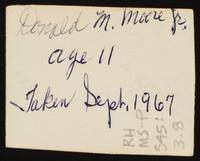 Donald M. Moore Jr.
age 11
Taken Sept. 1967
RH
MS-P
545:
3.8